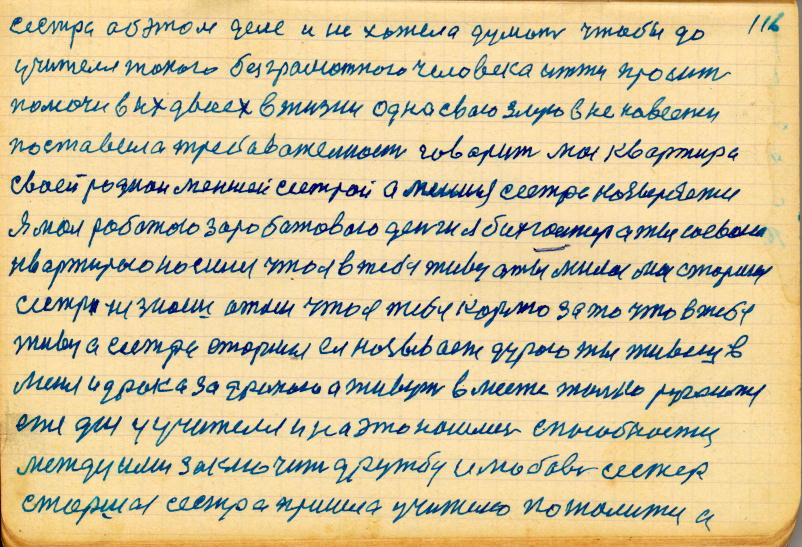 116
сестра обэтом деле и не хотела думат чтобы до
учителя такого безграмотного человека итти просит
помочи в их двоех вжизни однасвою злую
поставила требователност говорит моя квартира
своей родной меншей сестрой а менша сестра
Я моя работаю заработоваю денги я бухгалтер а ты своею
квартирою носиш что я в тебе живу а ты мила моя старша
сестра не знаеш отом что я тебе кормю за то что в тебе
живу а сестра старша ея називаеть дурою ты живеш в
меня и драка за дракою а живут вместе толко
ете две у учителя и на это нашлись способности
между ими заключит дружбу и любовь сестер
старшая сестра пришла учителю пожалится а